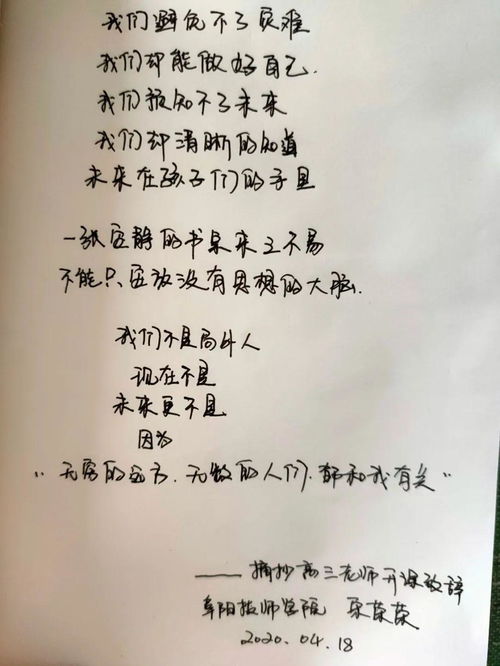 我们避免不了灾难
我们却能做好自己.
我们预知不了未来
我们却清晰的知道
未来在孩子们的手里
一张安静的书桌来之不易
不能只安放没有思想的大脑.
我们不是局外人
现在不是
未来更不是
因为
“无穷的远方.无数的人们.都和我有关”
——摘抄高三老师开课致辞
阜阳技师学院 荣荣
2020.04.18